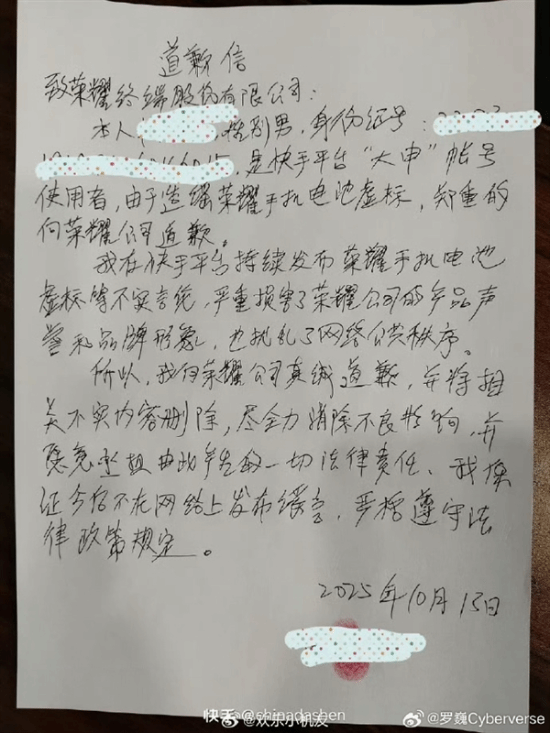 道歉信
致荣耀终端股份有限公司:
本人 ,性别男,身份证号:
,是快手平台“大申”帐号
使用者,由于造谣荣耀手机电池虚标,郑重的
向荣耀公司道歉。
我在快手平台持续发布荣耀手机电池
虚标等不实言论,严重损害了荣耀公司的产品声
誉和品牌形象,也扰乱了网络公共秩序。
所以,我向荣耀公司真诚道歉,并将相
关不实内容删除,尽全力消除不良影响,并
愿意承担由此产生的一切法律责任、我保
证今后不在网络上发布谣言,严格遵守法
律政策规定。
2025年10月13日
快手 @shinadashen
@欢乐小机友
@罗巍Cyberverse